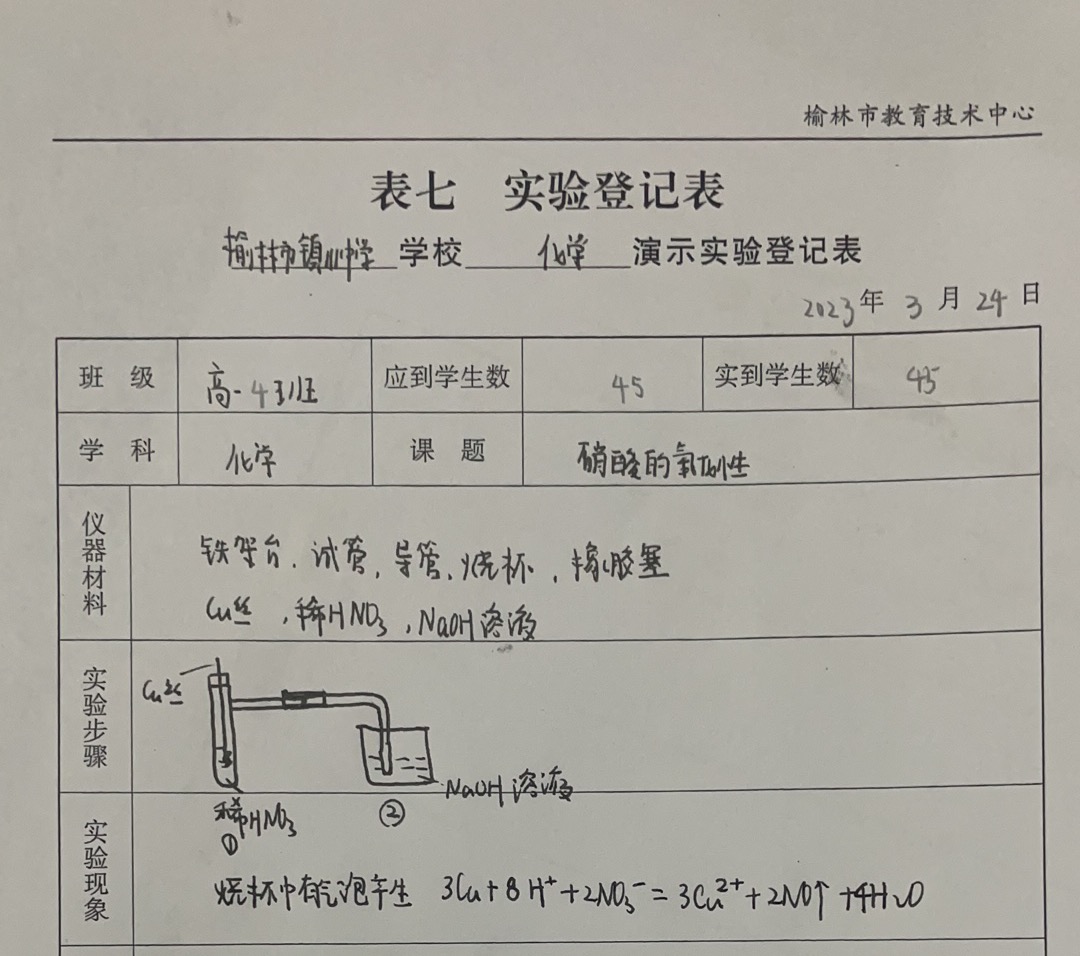 榆林市教育技术中心
表七 实验登记表
学校 化学 演示实验登记表
2023年 3 月 24 日
班 级 高一4班 应到学生数 45 实到学生数 45
学 科 化学 课 题 硝酸的氧化性
仪器材料 铁架台、试管、导管、烧杯、橡胶塞
Cu丝,稀HNO₃,NaOH溶液
实验步骤
Cu丝
NaOH溶液
稀HNO₃ ②
①
实验现象
烧杯中有气泡产生 3Cu+8H⁺+2NO₃⁻=3Cu²⁺+2NO↑+4H₂O